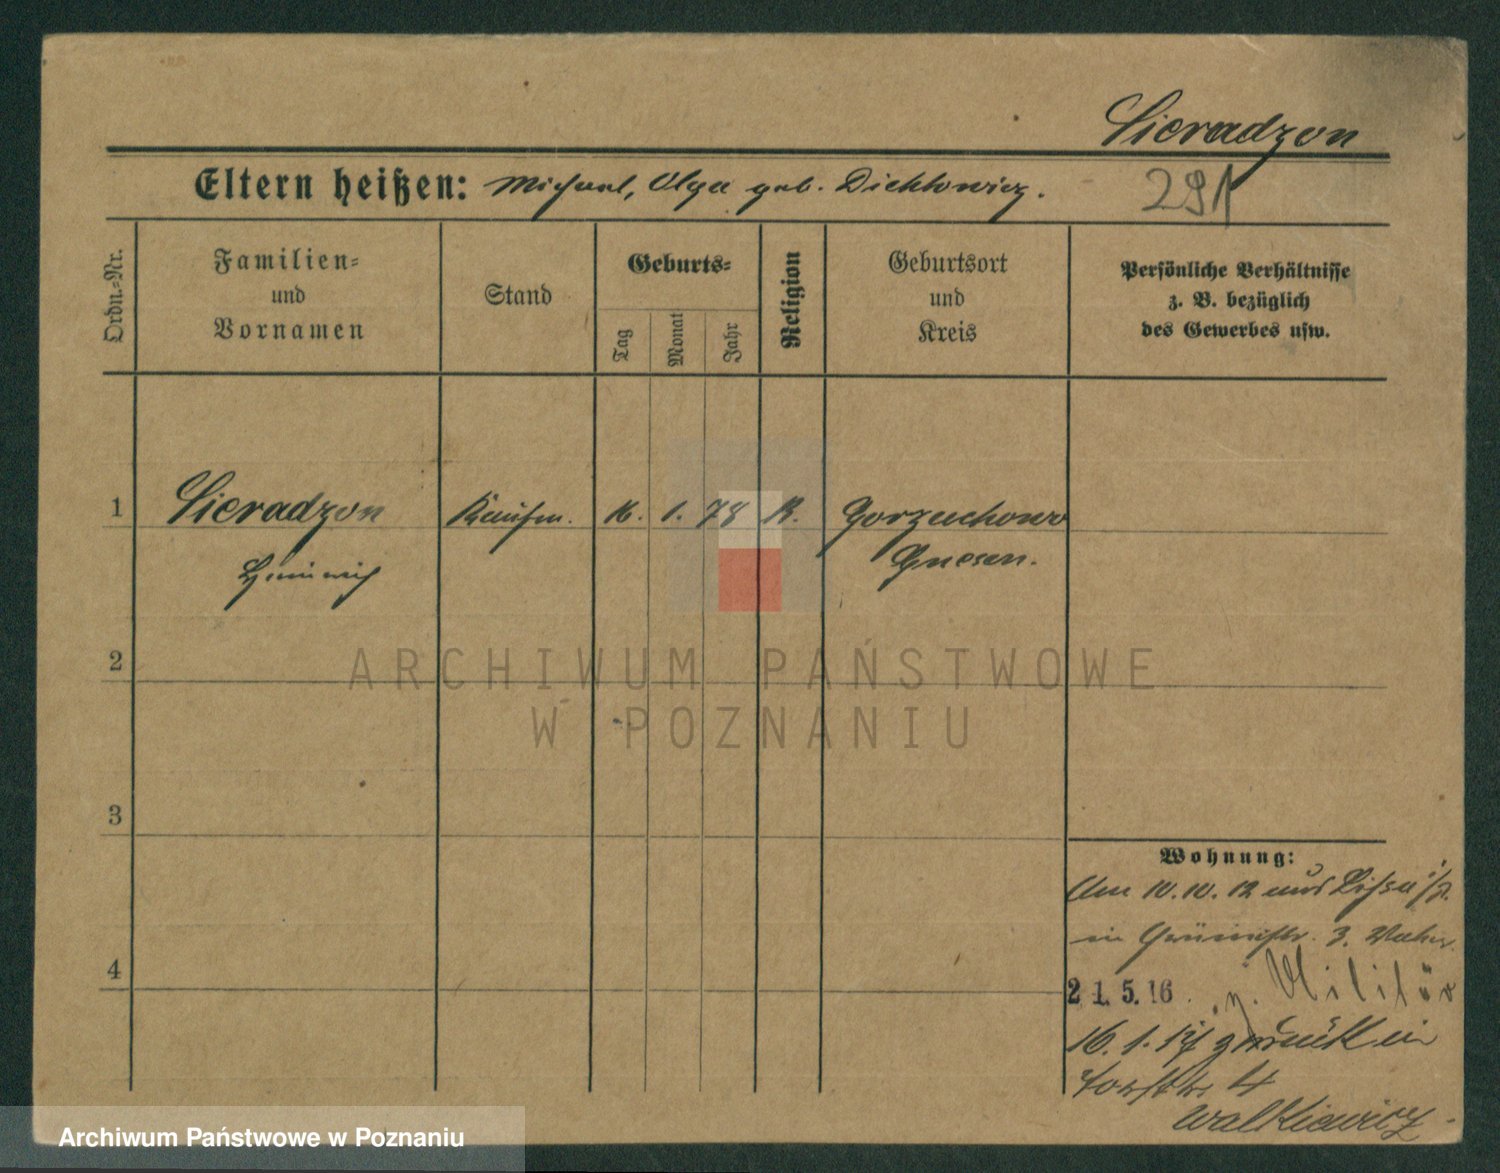 Sieradzon
Eltern heißen: Michael, Olga geb. Dichtowicz.
291
Ordn.-Nr.
Familien-
und
Vornamen
Stand
Geburts-
Tag
Monat
Jahr
Religion
Geburtsort
und
Kreis
Persönliche Verhältnisse
z. B. bezüglich
des Gewerbes usw.
1 Sieradzon Kaufm. 16. 1. 78 K. Gorzuchowo
Heinrich Gnesen.
2
3
4
ARCHIWUM PAŃSTWOWE
W POZNANIU
Wohnung:
Am 10.10.12 aus Lissa i/P.
in 3.
21.5.16. z. Militär
16.1.17 zurück in
4
Walkiewicz
Archiwum Państwowe w Poznaniu